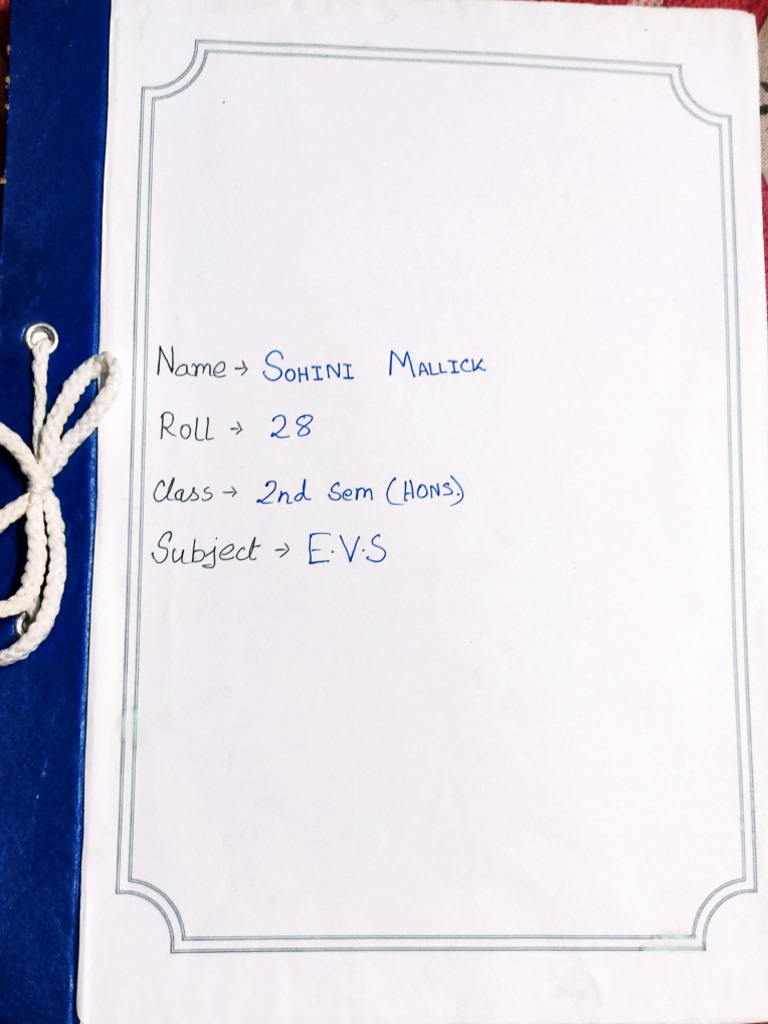 Name → SOHINI MALLICK
Roll → 28
Class → 2nd Sem (HONS.)
Subject → E.V.S